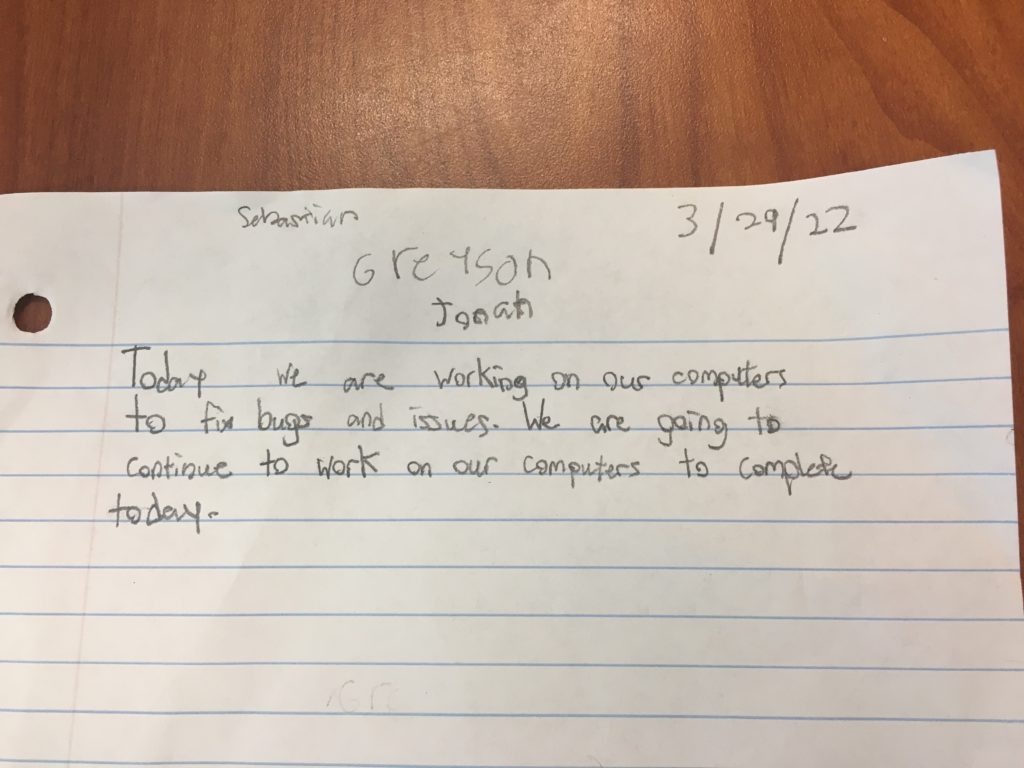 Sebastian
3/29/22
Greyson
Jonah
Today we are working on our computers
to fix bugs and issues. We are going to
continue to work on our computers to complete
today.
Gre